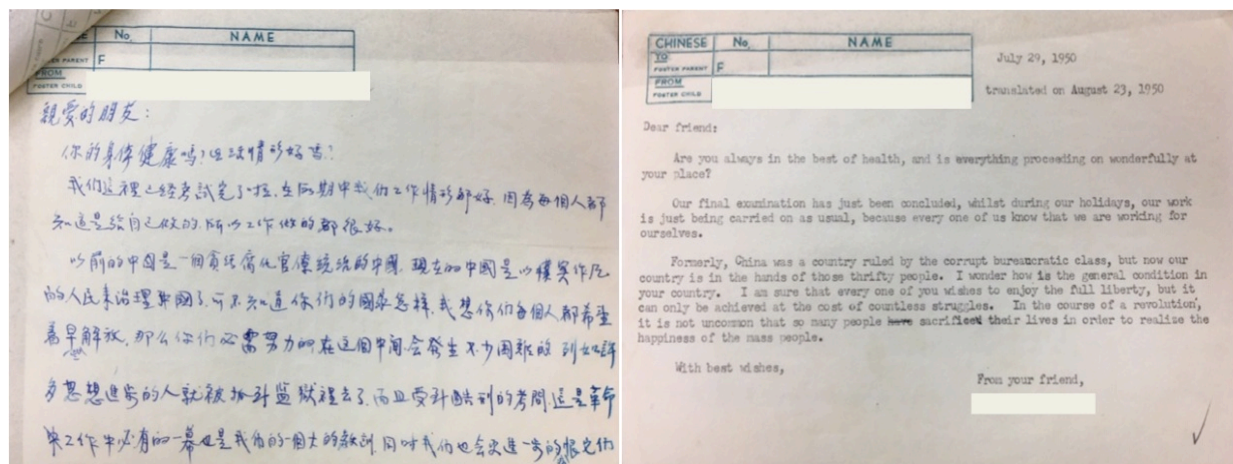 SE No. NAME
PARENT F
FROM
FOSTER CHILD
親愛的朋友:
你的身体健康吗?生活情形好吗?
我們這裡已經考試完了啦,在假期中我們工作情形都好,因為每個人都
知這是給自己做的,所以工作做的都很好。
以前的中国是一個貪污腐化官僚統治的中國,現在的中國是以樸実作風
的人民来治理中國了,可不知道你們的國家怎樣,我想你们每個人都希望
着早解放,那么你们必需努力的在這個中间会發生不少困難的 列如許
多思想進步的人就被抓到監獄裡去了,而且受到酷刑的考問,這是革命
工作中必有的一幕也是我们的一個大的教訓,同时我们也会更進一步的恨它们
CHINESE No. NAME
TO
FOSTER PARENT F
FROM
FOSTER CHILD
July 29, 1950
translated on August 23, 1950
Dear friend:
Are you always in the best of health, and is everything proceeding on wonderfully at
your place?
Our final examination has just been concluded, whilst during our holidays, our work
is just being carried on as usual, because every one of us know that we are working for
ourselves.
Formerly, China was a country ruled by the corrupt bureaucratic class, but now our
country is in the hands of those thrifty people. I wonder how is the general condition in
your country. I am sure that every one of you wishes to enjoy the full liberty, but it
can only be achieved at the cost of countless struggles. In the course of a revolution,
it is not uncommon that so many people have sacrificed their lives in order to realize the
happiness of the mass people.
With best wishes,
From your friend,